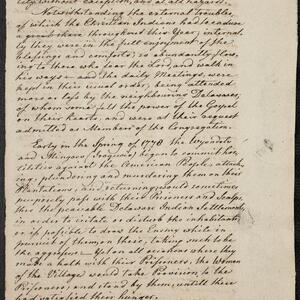 lity without exception, and at all hazards.
Notwithstanding the external troubles,
of which the Christian Indians had to endure
a great share throughout this Year; internal-
ly they were in the full enjoyment of the
blessings and comforts so abundantly flow-
ing to those who fear the Lord and walk in
his ways: and the daily Meetings, were
kept in their usual order; being attended
more or less by the neighbouring Delawares,
of whom some felt the power of the Gospel
on their hearts, and were at their request
admitted as Members of the Congregation.
Early in the Spring of 1778 the Wyondots
and Mingoes (Iroquois) began to commit hos-
tilities against the American People, attack-
ing, plundering and murdering them on their
Plantations; and returning would sometimes
purposely pass with their Prisoners and Scalps
thro' the peaceable Delaware Indian Settlements
in order to irritate or disturb the inhabitants,
or if possible to draw the Enemy while in
pursuit of them on these, taking such to be
the aggressors. Upon all occasions where they
made a halt with their Prisoners, the Women
of the Village would take Provision to the
Prisoners, and stand by them, until these
had satisfied their hunger.